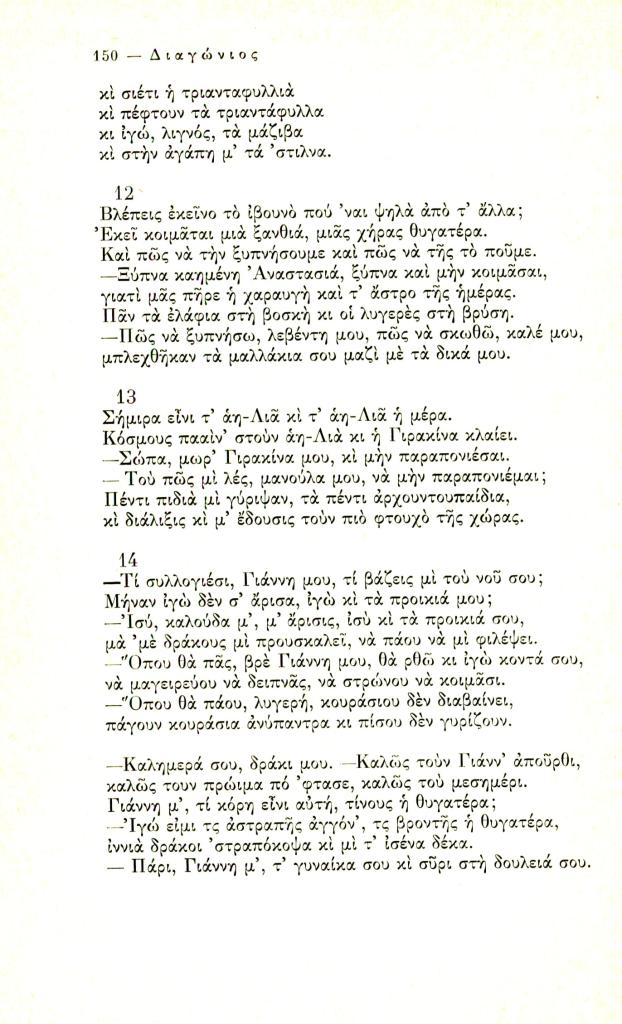 150 — Διαγώνιος
κὶ σιέτι ἡ τριανταφυλλιὰ
κὶ πέφτουν τὰ τριαντάφυλλα
κι ἰγώ, λιγνός, τὰ μάζιβα
κὶ στὴν ἀγάπη μ’ τά ’στιλνα.
12
Βλέπεις ἐκεῖνο τὸ ἰβουνὸ πού ’ναι ψηλὰ ἀπὸ τ’ ἄλλα;
Ἐκεῖ κοιμᾶται μιὰ ξανθιά, μιᾶς χήρας θυγατέρα.
Καὶ πῶς νὰ τὴν ξυπνήσουμε καὶ πῶς νὰ τῆς τὸ ποῦμε.
—Ξύπνα καημένη Ἀναστασιά, ξύπνα καὶ μὴν κοιμᾶσαι,
γιατὶ μᾶς πῆρε ἡ χαραυγὴ καὶ τ’ ἄστρο τῆς ἡμέρας.
Πᾶν τὰ ἐλάφια στὴ βοσκὴ κι οἱ λυγερὲς στὴ βρύση.
—Πῶς νὰ ξυπνήσω, λεβέντη μου, πῶς νὰ σκωθῶ, καλέ μου,
μπλεχθῆκαν τὰ μαλλάκια σου μαζὶ μὲ τὰ δικά μου.
13
Σήμιρα εἶνι τ’ ἁη-Λιᾶ κὶ τ’ ἁη-Λιᾶ ἡ μέρα.
Κόσμους πααίν’ στοὺν ἁη-Λιὰ κι ἡ Γιρακίνα κλαίει.
—Σώπα, μωρ’ Γιρακίνα μου, κὶ μὴν παραπονιέσαι.
— Τοὺ πῶς μὶ λές, μανούλα μου, νὰ μὴν παραπονιέμαι;
Πέντι πιδιὰ μὶ γύριψαν, τὰ πέντι ἀρχουντουπαίδια,
κὶ διάλιξις κὶ μ’ ἔδουσις τοὺν πιὸ φτουχὸ τῆς χώρας.
14
—Τί συλλογιέσι, Γιάννη μου, τί βάζεις μὶ τοὺ νοῦ σου;
Μήναν ἰγὼ δὲν σ’ ἄρισα, ἰγὼ κὶ τὰ προικιά μου;
—Ἰσύ, καλούδα μ’, μ’ ἄρισις, ἰσὺ κὶ τὰ προικιά σου,
μὰ ’μὲ δράκους μὶ προυσκαλεῖ, νὰ πάου νὰ μὶ φιλέψει.
—Ὅπου θὰ πᾶς, βρὲ Γιάννη μου, θὰ ρθῶ κι ἰγὼ κοντά σου,
νὰ μαγειρεύου νὰ δειπνᾶς, νὰ στρώνου νὰ κοιμᾶσι.
—Ὅπου θὰ πάου, λυγερή, κουράσιου δὲν διαβαίνει,
πάγουν κουράσια ἀνύπαντρα κι πίσου δὲν γυρίζουν.
—Καλημερά σου, δράκι μου. —Καλῶς τοὺν Γιάνν’ ἀποῦρθι,
καλῶς τουν πρώιμα πό ’φτασε, καλῶς τοὺ μεσημέρι.
Γιάννη μ’, τί κόρη εἶνι αὐτή, τίνους ἡ θυγατέρα;
—Ἰγώ εἰμι τς ἀστραπῆς ἀγγόν’, τς βροντῆς ἡ θυγατέρα,
ἰννιὰ δράκοι ’στραπόκοψα κὶ μὶ τ’ ἰσένα δέκα.
— Πάρι, Γιάννη μ’, τ’ γυναίκα σου κὶ σῦρι στὴ δουλειά σου.